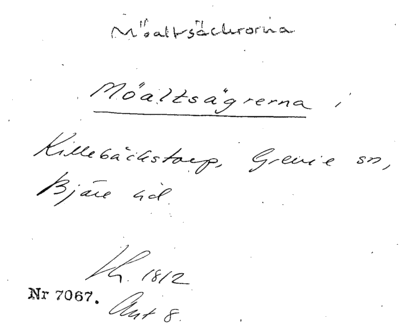 Möaltsäckrorna
Möaltsägrerna i
Killebäckstorp, Grevie sn,
Bjäre hd.
Lh. 1812
Nr 7067.
Akt 8.